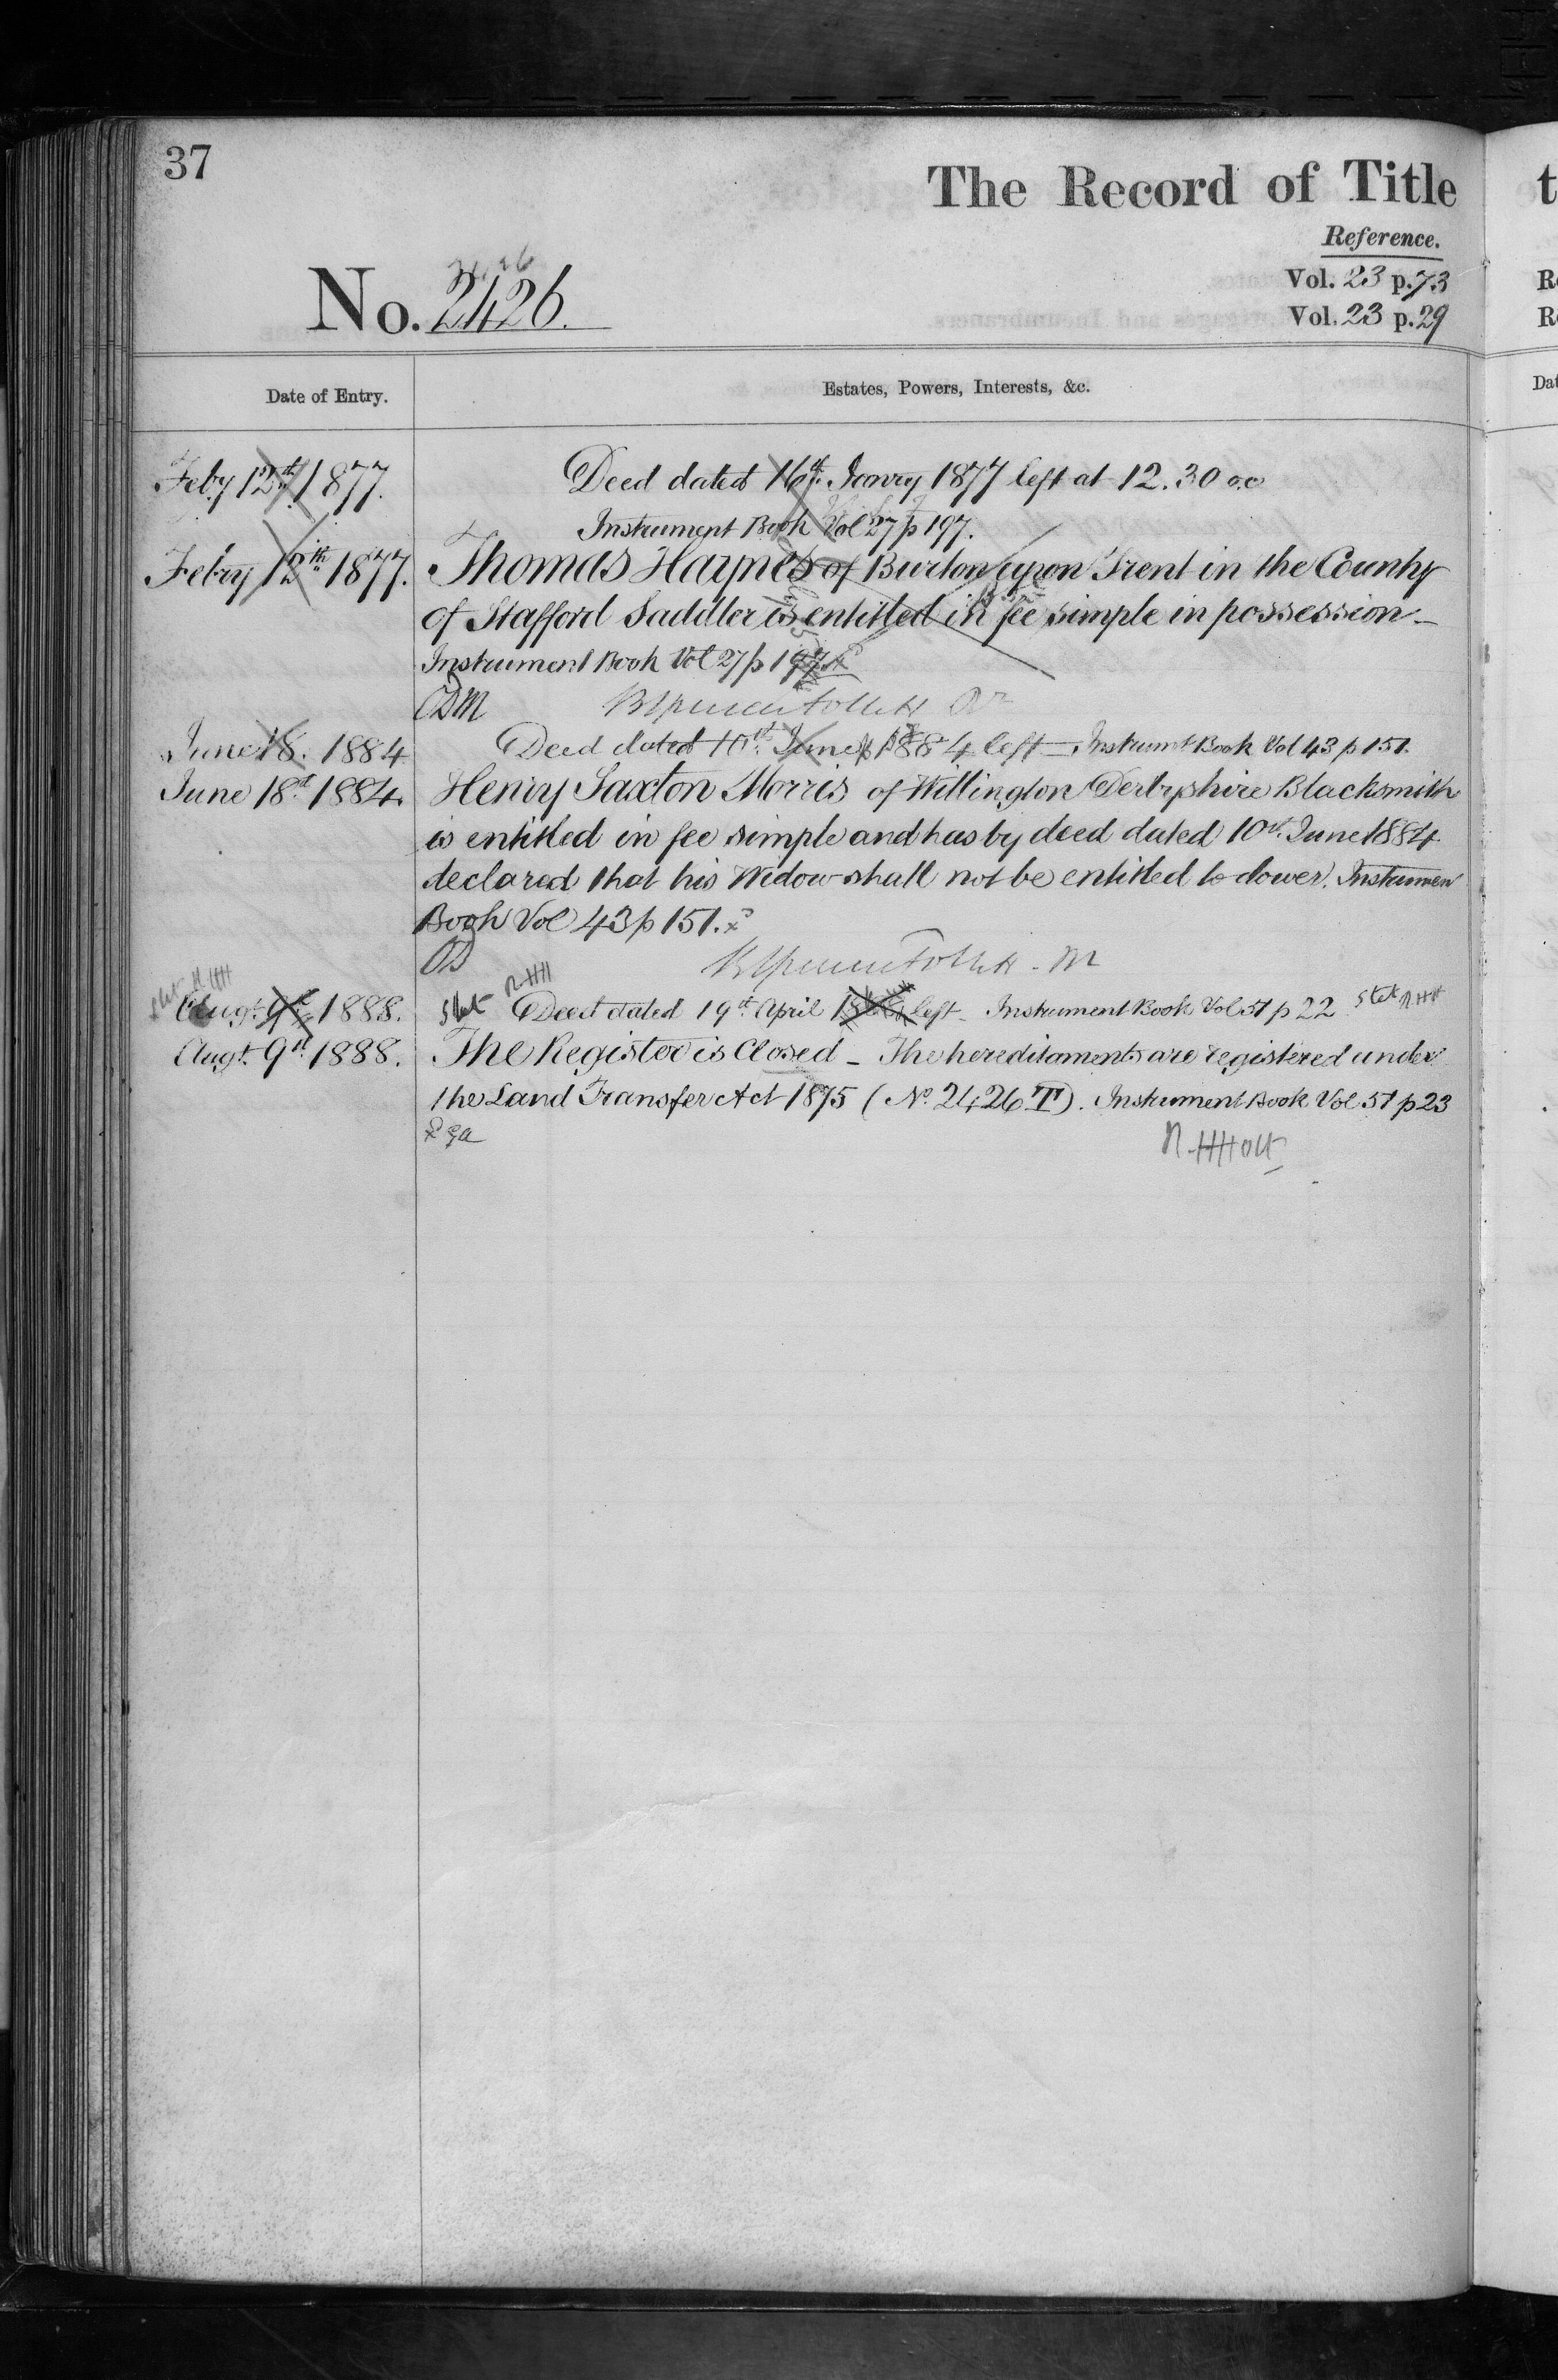 37
The Record of Title
Reference.
No. 2426.
Vol. 23 p. 73
Vol. 23 p. 29
Date of Entry.
Estates, Powers, Interests, &c.
Feby 12th 1877.
Deed dated 16th Janry 1877 left at 12.30 o.c
Instrument Book Vol 27 p 197.
Febry 12th 1877.
Thomas Haynes of Burton upon Trent in the County
of Stafford Saddler is entitled in fee simple in possession _
Instrument Book Vol 27 p 197
June 18. 1884
Deed dated 10th June 1884 left _ Instrumt Book Vol 43 p 151.
June 18th 1884.
Henry Saxton Morris of Willington Derbyshire Blacksmith
is entitled in fee simple and has by deed dated 10th June 1884
declared that his Widow shall not be entitled to dower. Instrumen
Book Vol 43 p 151.
Augt. 9th 1888.
Stet Deed dated 19th April 1888 left _ Instrument Book Vol 51 p 22 Stet
Augt. 9th 1888.
The Register is Closed _ The hereditaments are registered under
the Land Transfer Act 1875 (No. 2426 T). Instrument Book Vol 51 p 23
R. H Holt
t
R
R
Dat